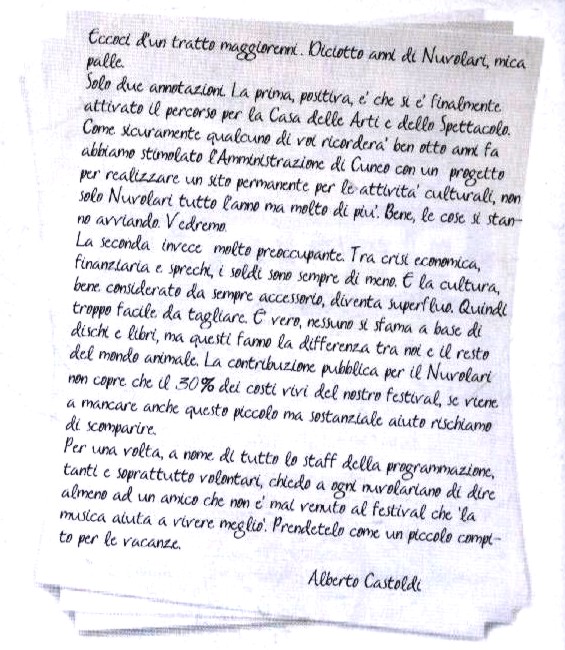 Eccoci d'un tratto maggiorenni. Diciotto anni di Nuvolari, mica
palle.
Solo due annotazioni. La prima, positiva, e' che si e' finalmente
attivato il percorso per la Casa delle Arti e dello Spettacolo.
Come sicuramente qualcuno di voi ricordera' ben otto anni fa
abbiamo stimolato l'Amministrazione di Cuneo con un progetto
per realizzare un sito permanente per le attivita' culturali, non
solo Nuvolari tutto l'anno ma molto di piu'. Bene, le cose si stan-
no avviando. Vedremo.
La seconda invece molto preoccupante. Tra crisi economica,
finanziaria e sprechi, i soldi sono sempre di meno. E la cultura,
bene considerato da sempre accessorio, diventa superfluo. Quindi
troppo facile da tagliare. E' vero, nessuno si sfama a base di
dischi e libri, ma questi fanno la differenza tra noi e il resto
del mondo animale. La contribuzione pubblica per il Nuvolari
non copre che il 30% dei costi vivi del nostro festival, se viene
a mancare anche questo piccolo ma sostanziale aiuto rischiamo
di scomparire.
Per una volta, a nome di tutto lo staff della programmazione,
tanti e soprattutto volontari, chiedo a ogni nuvolariano di dire
almeno ad un amico che non e' mai venuto al festival che 'la
musica aiuta a vivere meglio'. Prendetelo come un piccolo compi-
to per le vacanze.
Alberto Castoldi